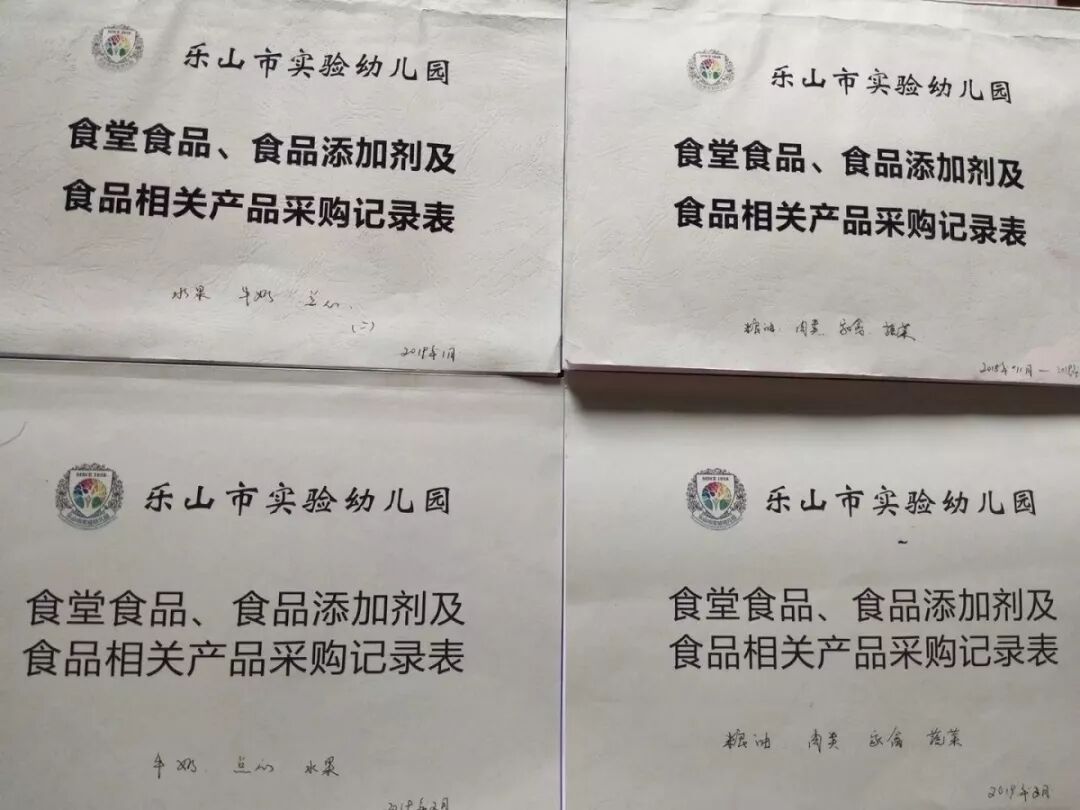 乐山市实验幼儿园
食堂食品、食品添加剂及
食品相关产品采购记录表
水果 牛奶 点心
(二)
2019年1月
乐山市实验幼儿园
食堂食品、食品添加剂及
食品相关产品采购记录表
粮油 肉类 家禽 蔬菜
2018年11月—
SINCE 1956
乐山市实验幼儿园
食堂食品、食品添加剂及
食品相关产品采购记录表
牛奶 点心 水果
乐山市实验幼儿园
~
食堂食品、食品添加剂及
食品相关产品采购记录表
粮油 肉类 家禽 蔬菜
2019年3月